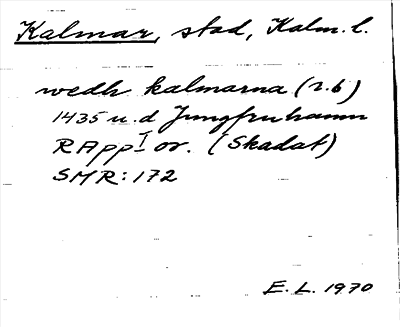 Kalmar, stad, Kalm. l.
wedh kalmarna (r.b)
1435 u.d Jungfruhamn
RApp I or. (Skadat)
SMR: 172
E.L. 1970